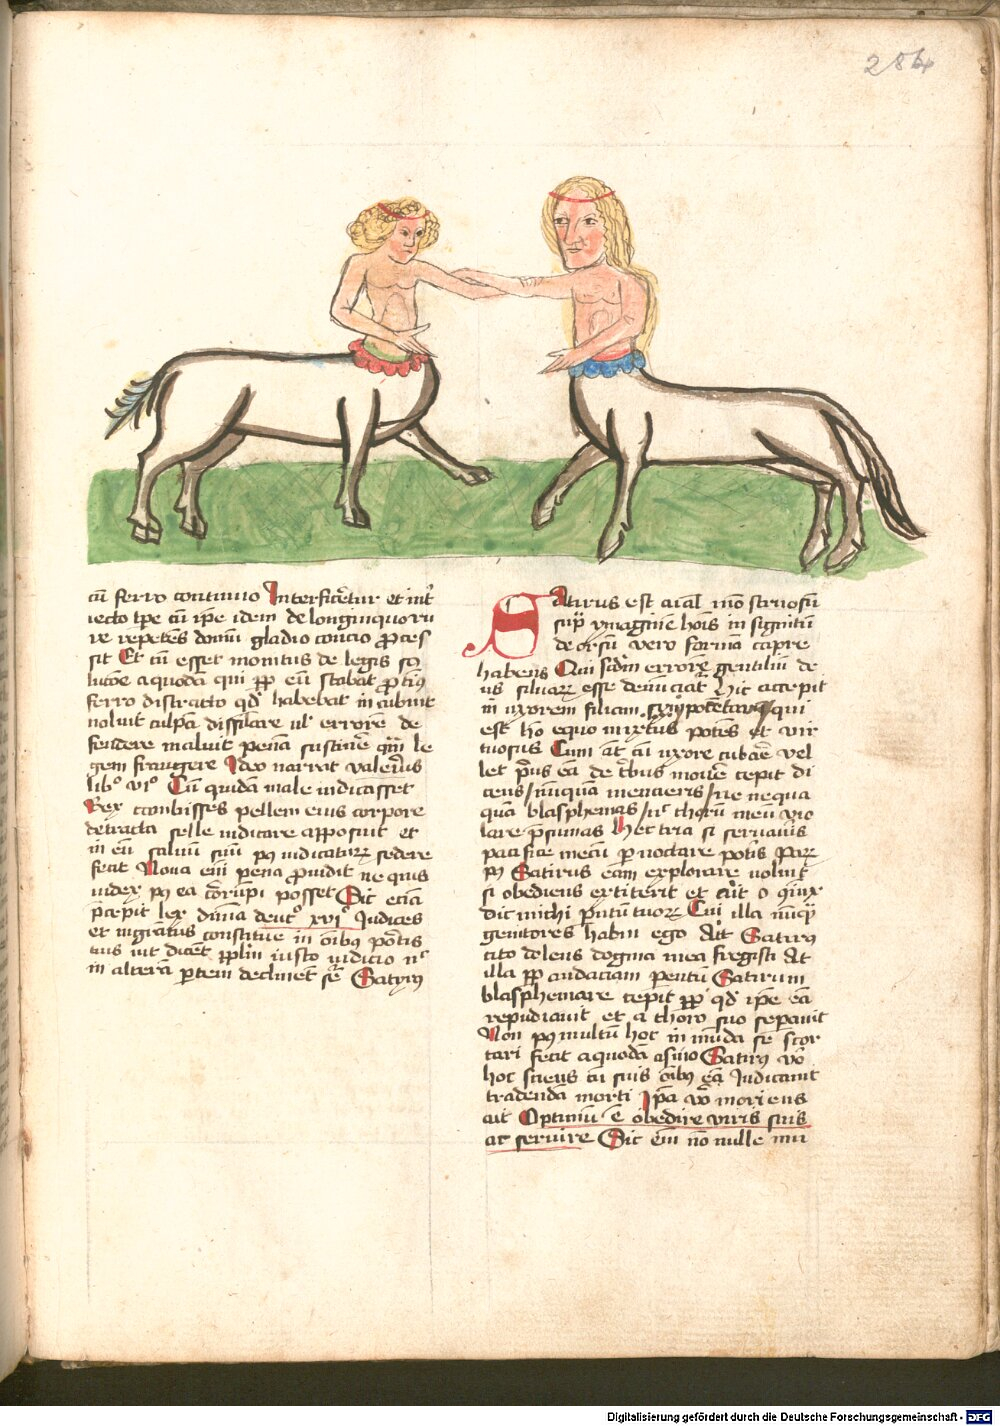 284
cū ferro continuo Interficeretur et int
uecto tpe cū ipe idem de longinquo ru
re repetens domū gladio concio proces
sit Et cū esset monitus de legis so
lucōe a quodam qui pp eū stabat protinus
ferro districto qd habebat incubuit
noluit culpā dissilare ul errore de
fendere maluit penā sustinere qm le
gem frangere Ideo narrat valerius
libº viº Cū quidā male iudicasset
Rex cambisses pellem eius corpore
detracta selle iudicare apposuit et
in eū filium suū p iudicaturū sedere
fecit Noua em pena prouidit ne quis
iudex p ea corrumpi posset Sic eciā
precepit lex diuina deutº xviº Iudices
et magistratus constitue in oībus portis
tuis ut dicent pplm iusto iudicio nc
in alterā partem declinent sr Satyrus
Satirus est aīal mōstruosū
supra ymaginē hoīs insignitum
deorsū vero formā capre
habens Qui scdm errorē gentiliū de
us siluarū esse denunciatur Hic accepit
in uxorem filiam ypocentauri qui
est hō equo mixtus potens et vir
tuosus Cum at cū uxore cubare vel
let prius eā de tribus monere cepit di
cens nunquam mencieris ne nequa
quā blasphemas nc thorū meū vio
lare presumas Hec tria si seruaueris
pacifice mecū pernoctare poteris Parū
p Satirus eam explorare voluit
si obediens extiterit et ait o coniux
dic michi parentū tuorū Cui illa nunquam
genitores habui ego Ait Satirus
cito dolens dogma mea fregisti At
illa pp audaciam parentū Satirum
blasphemare cepit pp qd ipe eā
repudiauit et a thoro suo separauit
Non p multū hoc in munda se scor
tari fecit a quodā asino Satirus vo
hoc sciens cū suis oībus eā Iudicauit
tradendā morti Ipa vo moriens
ait Optimū ē obedire viris suis
ac seruire Sic em nō nulle mu
Digitalisierung gefördert durch die Deutsche Forschungsgemeinschaft - DFG